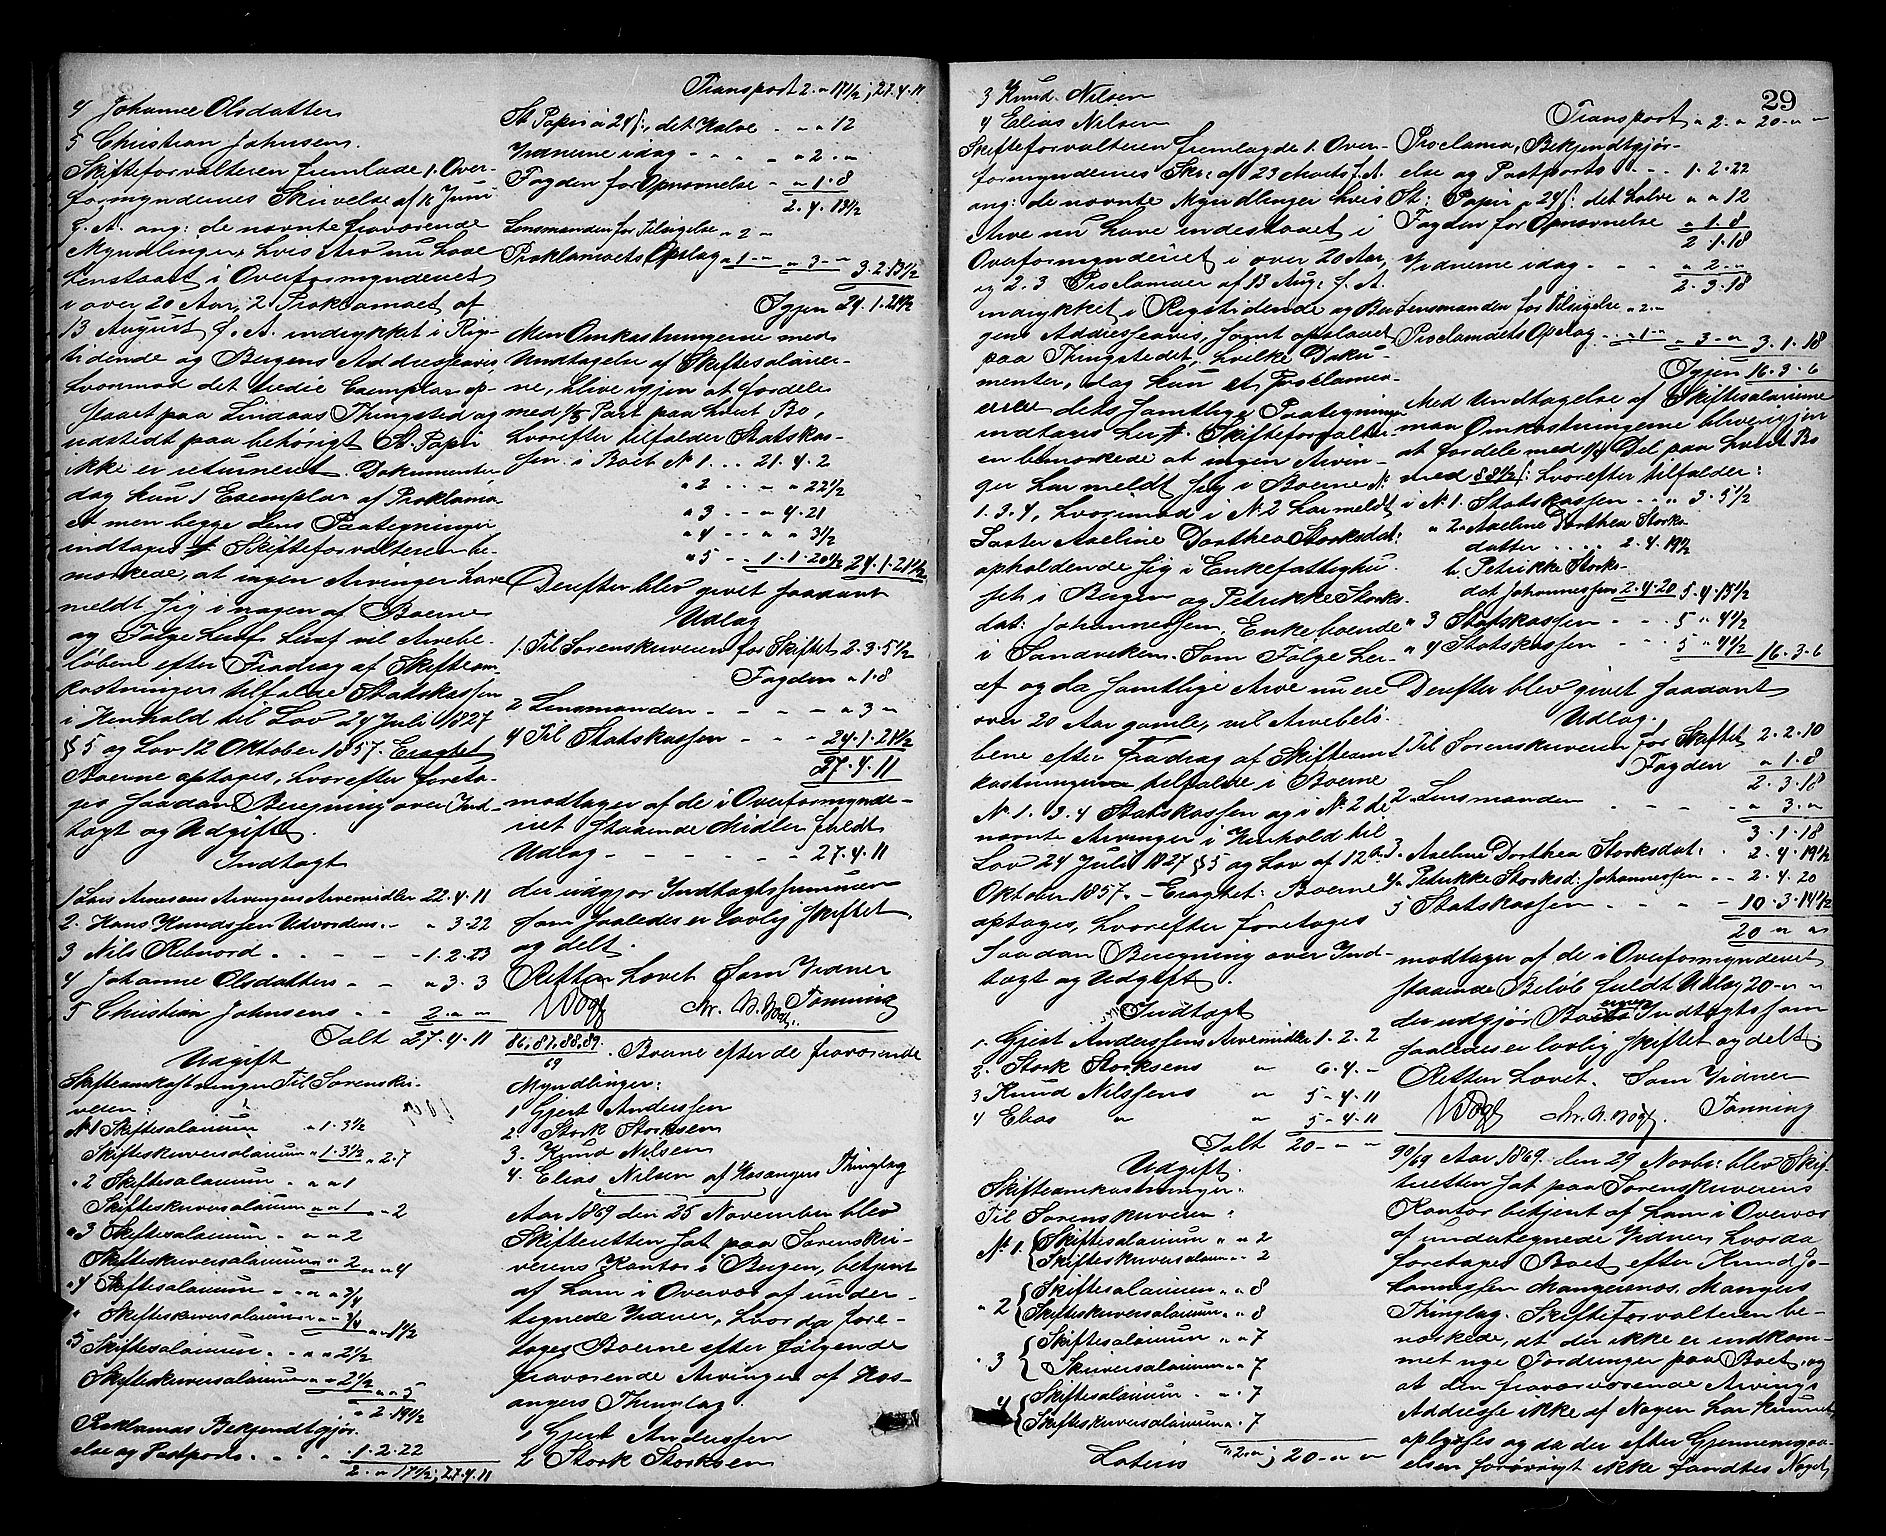 4 Johanne Olsdatter
5 Christian Johnsens.
Skifteforvalteren fremlade 1. Over-
formyndernes Skrivelse af 16 Juni
f. A. ang: de nævnte fraværende
Myndlinger, hvis Arv nu have
henstaaet i Overformynderiet
i over 20 Aar, 2 Proklamaet af
13 August f. A. indrykket i Rigs-
tidende og Bergens Adresseavis,
hvormod det tredie Exemplar op-
slaaet paa Lindaas Thingsted og
udstedt paa behørigt St. Papir
ikke er returneret. Dokumenter,
dog kun 1 Exemplar af Proklama
et men begge dens Paategninger
indtages Skifteforvalteren be-
mærkede, at ingen Arvinger have
meldt sig i nogen af Boerne
og Følge heraf vil Arvebe-
løbene efter Fradrag af Skifteom-
kostninger tilfalde Statskassen
i Henhold til Lov 24 Juli 1827
§ 5 og Lov 12 Oktober 1857. Eragtet
Boerne optages, hvorefter foreta-
ges saadan Beregning over Ind-
tægt og Udgift.
Indtægt
1 Lars Arnesens Arvingers Arvemidler 22.4.11
2. Hans Knudssen Udvordens - " 3.22
3 Nils Rebnord . . - - - 1.2.23
4 Johanne Olsdatters - - " 3. 3
5 Christian Johnsens - - 2 - " - "
Ialt 27.4.11
Udgift
Skifteomkostninger Til Sorenskri-
veren:
No 1 Skiftesalarium " 1. 3½
Skifteskriversalarium " 1. 3½ " 2.7
" 2 Skiftesalarium - " " 1
Skifteskriversalarium " " 1 " " 2
" 3 Skiftesalarium - " " 2
Skifteskriversalarium " " 2 " " 4
" 4 Skiftesalarium - " " ¾
" Skifteskriversalarium " " ¾ " " 1½
" 5 Skiftesalarium - " " 2½
Skifteskriversalarium " " 2½ " " 5
" 2.19½
Proklamas Bekjendtgjør-
else og Postporto. - - - 1.2.22
2. " 17½; 27.4.11
Transport 2. " 17½; 27.4.11
St. Papir a 24 f:, det Halve - " " 12
Vidnerne idag - - - " " 2. "
Fogden for Opnævnelse - " 1. 8
2. 4. 13½
Lensmanden for Tilsigelse " 2 "
Proklamaets Opslag " 1 " - " 3 - " 3.2.13½
Igjen 24.1.21½
Men Omkostningerne med
Undtagelse af Skiftesalarier-
ne, blive igjen at fordele
med 1/5 Part paa hvert Bo,
hvorefter tilfalder Statskas-
sen i Boet No 1 . . . 21.4.2
" 2 - - " " 22½
" 3 - - " 4.21
" 4 - - " " 3½
" 5 - - 1.1.20½ 24.1.21½
Derefter blev givet saadant
Udlæg
1. Til Sorenskriveren for Skiftet 2.3.5½
Fogden " 1.8
2 Lensmanden - - - - " 3 "
4 Til Statskassen - - - 24.1.21½
27.4.11
modtager af de i Overformynde-
riet staaende Midler fuldt
Udlæg - - - - - - 27.4.11
der udgjør Indtægtssummen
som saaledes er lovlig skiftet
og delt.
Retten hævet Som Vidner
Vogt Chr. N. Vogt. Tønning
86, 87, 88, 89/69. Boerne efter de fraværende
Myndlinger:
1 Gjert Anderssen
2. Stork Storksen
3. Knud Nilsen
4. Elias Nilsen af Hosangers Thinglag
Aar 1869 den 25 November blev
Skifteretten sat paa Sorenskri-
verens Kontor i Bergen, betjent
af ham i Overvær af under-
tegnede Vidner, hvorda fore-
toges Boerne efter følgende
fraværende Arvinger af Hos-
angers Thinglag.
1 Gjert Anderssen
2 Stork Storksen
29
3 Knud. Nilsen
4 Elias Nilsen
Skifteforvalteren fremlagde 1. Over-
formyndernes Skr: af 23 Marts f. A.
ang: de nævnte Myndlinger hvis
Arve nu have indestaaet i
Overformynderiet i over 20 Aar,
og 2. 3 Proclamaer af 13 Aug: f. A.
indrykket i Rigstidende og Ber-
gens Addresseavis, samt opslaaet
paa Thingstedet, hvilke Doku-
menter, dog kun et, Proklama-
erne dets samtlige Paategninger
indtages her. Skifteforvalter-
en bemærkede at ingen Arvin-
ger har meldt sig i Boerne No
1. 3. 4, hvorimod i No 2 har meldt
Søster Axeline Dorthea Storksdat:
opholdende sig i Enkefattighu-
set i Bergen og Petrikke Storks-
dat: Johannessen, Enke boende
i Sandviken. Som Følge her-
af og da samtlige Arve nu ere
over 20 Aar gamle, vil Arvebelø-
bene efter Fradrag af Skifteom-
kostninger tilfalde i Boerne
No 1. 3. 4 Statskassen og i No 2 de
nævnte Arvinger i Henhold til
Lov 24 Juli 1827 § 5 og Lov af 12te
Oktober 1857. - Eragtet: Boerne
optages, hvorefter foretages
saadan Beregning over Ind-
tægt og Udgift.
Indtægt
1. Gjert Anderssens Arvemidler 1.2.2
2. Stork Storksens " 6.4. -
3 Knud Nilssens " 5 - 4.11
4 Elias " " 5 - 4.11
Ialt 20 - " "
Udgift.
Skifteomkostninger.
Til Sorenskriveren:
No 1. Skiftesalarium " " 2
Skifteskriversalarium " " 2
" 2 Skiftesalarium " " 8
Skifteskriversalarium " " 8
" 3 Skiftesalarium " " 7
Skriversalarium " " 7
4 Skiftesalarium - " . 7
Skifteskriversalarium " . 7
Lateris " 2 - "; 20 - " "
Transport " 2 - " 20 - " "
Proclama, Bekjendtgjør-
else og Postporto. - - 1.2.22
St: Papir a 24 f: det halve " " 12
Fogden for Opnævnelse " 1.8
2.1.18
Vidnerne idag - - - " 2 - "
2.3.18
Lensmanden for Tilsigelse " 2 "
Proclamaets Opslag - - 1 " " 3 - " 3.1.18
Igjen 16.3.6
Med Undtagelse af Skiftesalarierne
maa Omkostningerne blive igjen
at fordele med ¼ Del paa hvert Bo
med 88½ f: hvorefter tilfalder:
i No 1. Statskassen - - " 3.5½
" 2 a Axeline Dorthea Storks-
datter . . . . 2.4.19½
b. Petrikke Storks-
dat Johannessen 2.4.20 5.4.15½
" 3 Statskassen - - - 5 " 4½
" 4 Statskassen - - 5 " 4½ 16.3.6
Derefter blev givet saadant
Udlæg.
1 Til Sorenskriveren for Skiftet 2.2.10
Fogden " 1.8
2.3.18
2. Lensmanden - - - - " 3. "
3.1.18
3. Axeline Dorthea Storksdat: - 2.4.19½
4 Petrikke Storksd: Johannessen - - 2.4.20
5 Statskassen - - - - 10.3.14½
20 - " "
modtager af de i Overformynderiet
staaende Beløb fuldt Udlæg 20 - " "
der udgjør Boernes Indtægt som
saaledes er lovlig skiftet og delt
Retten hævet. Som Vidner
Vogt Chr. N. Vogt. Tønning
90/69 Aar 1869. den 29 Novbr: blev Skif-
teretten sat paa Sorenskriverens
Kontor betjent af ham i Overvær
af undertegnede Vidner, hvorda
foretoges Boet efter Knud Jo-
hannessen Mangersnes. Mangers
Thinglag. Skifteforvalteren be-
mærkede, at der ikke er indkom-
met nye Fordringer paa Boet, og
at den fraværende Arvings
Addresse ikke af Nogen har kunnet
oplyses og da der efter Gjennemgaa-
elsen forøvrigt ikke fandtes Noget